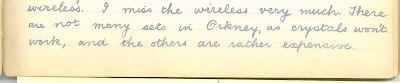 wireless. I miss the wireless very much. There
are not many sets in Orkney, as crystals won't
work, and the others are rather expensive.